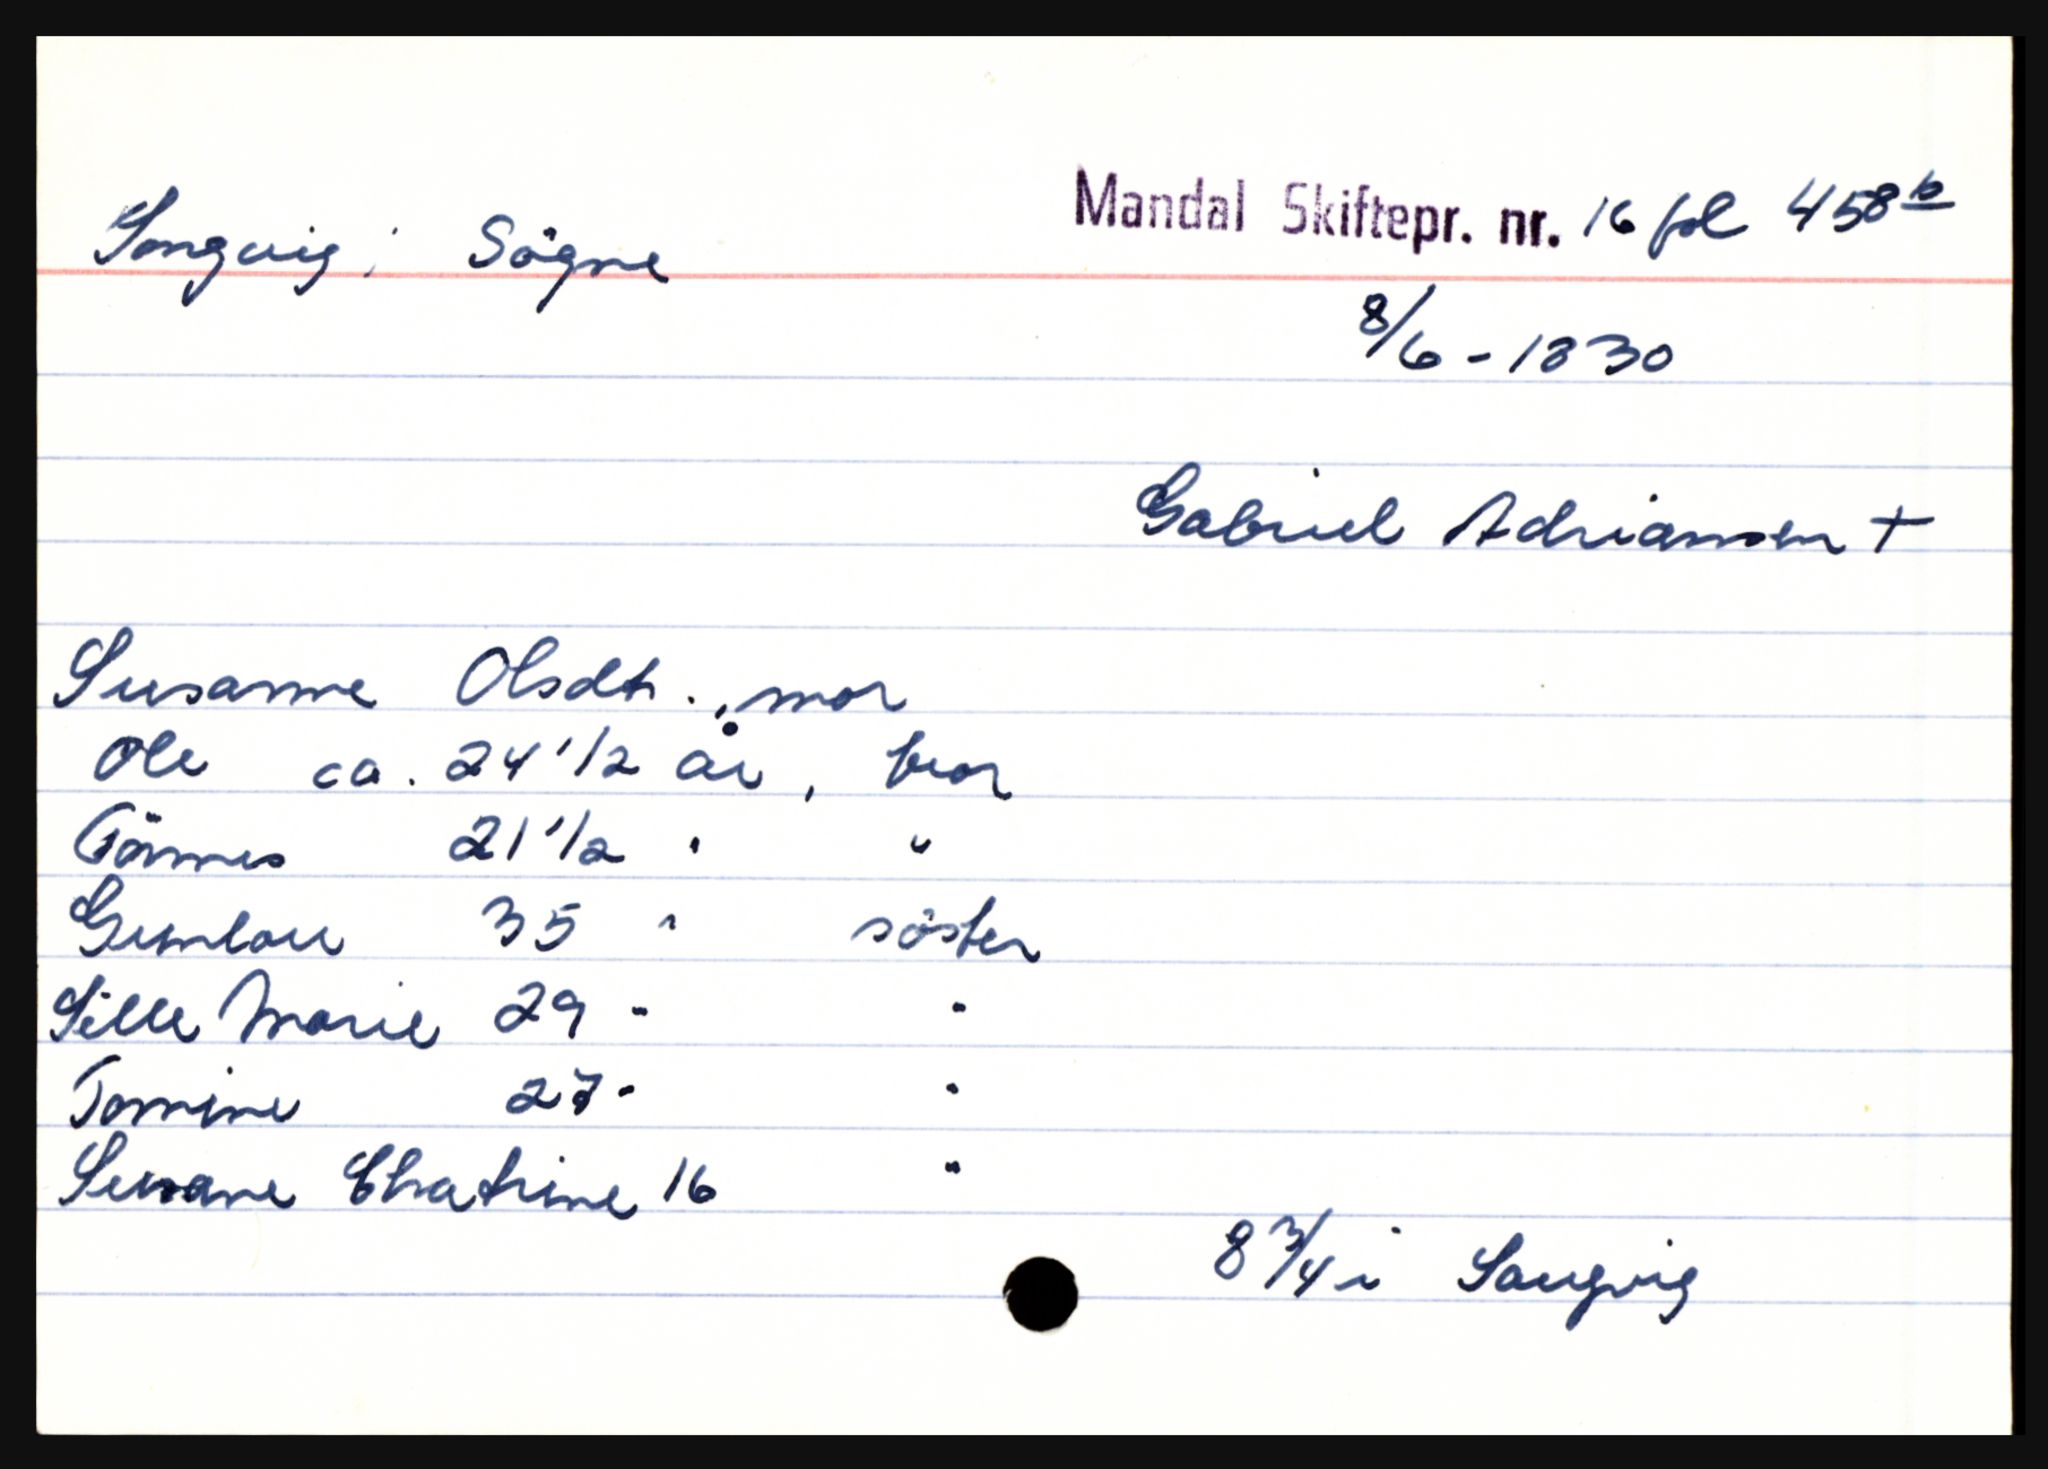 Songvig, Sögne
Mandal Skiftepr. nr. 16 fol 458 b
8/6 - 1830
Gabriel Adriansen +
Susanne Olsdt., mor
Ole ca. 24 1/2 år, bror
Tönnes 21 1/2 " "
Gunlau 35 " söster
Sille Marie 29 " "
Tomine 27 " "
Susane Chatrine 16 "
8 3/4 i Sangvig